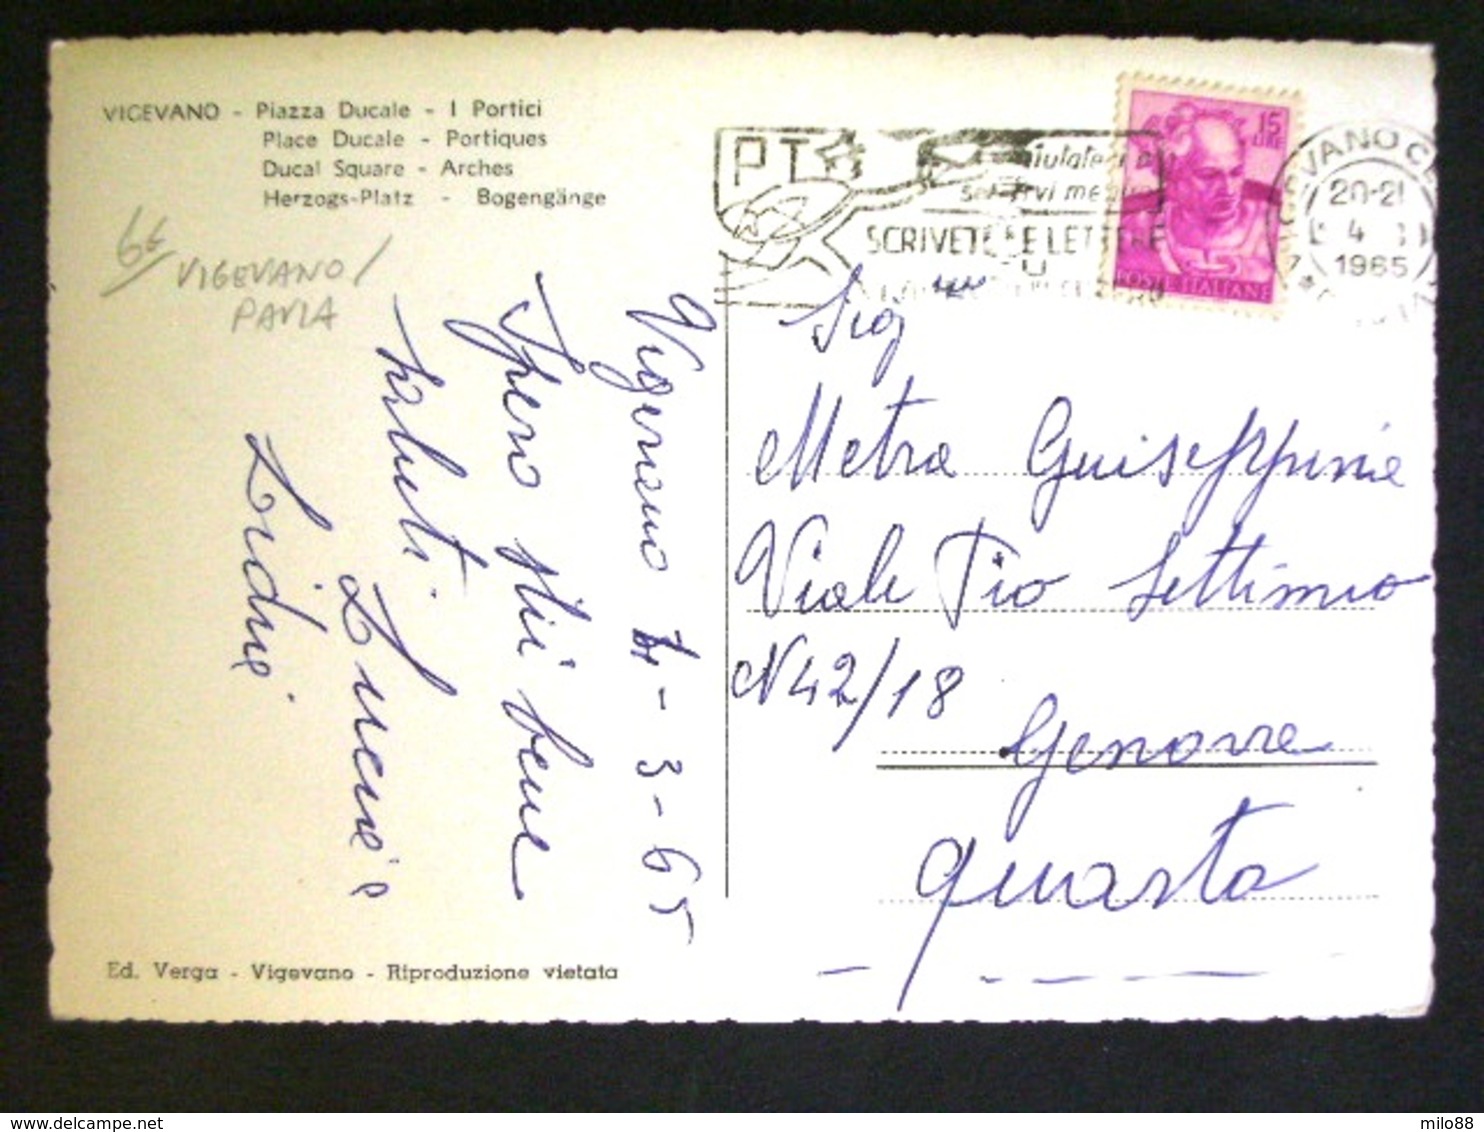 VIGEVANO - Piazza Ducale - I Portici
Place Ducale - Portiques
Ducal Square - Arches
Herzogs-Platz - Bogengänge
6€
VIGEVANO/
PAVIA
Vigevano 4-3-65
Spero stii bene
saluti
Lidia
Ed. Verga - Vigevano - Riproduzione vietata
PT
aiutateci a
servirvi meglio
SCRIVETE LETTERE
15
LIRE
POSTE ITALIANE
20-21
4
1965
Sig
Metra Guiseppinie
Viale Pio Settimio
N 42/18
Genova
Quarto
milo88